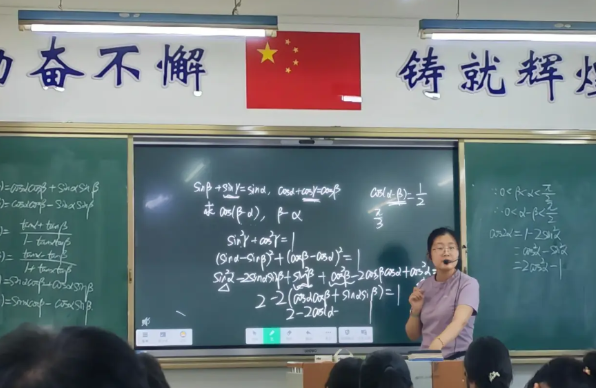 奋不懈
铸就辉
)=cosαcosβ+sinαsinβ
)=cosαcosβ-sinαsinβ
)=
tanα+tanβ
1-tanαtanβ
)=
tanα-tanβ
1+tanαtanβ
)=sinαcosβ+cosαsinβ
)=sinαcosβ-cosαsinβ
sinβ+sinγ=sinα, cosα+cosγ=cosβ
求 cos(β-α), β-α
sin²γ+cos²γ=1
(sinα-sinβ)²+(cosβ-cosα)²=1
sin²α-2sinαsinβ+sin²β+cos²β-2cosβcosα+cos²α=
2-2(cosαcosβ+sinαsinβ)=1
2-2cos(α-
cos(α-β)=1/2
π/3
∵0<β<α<π/2
∴0<α-β<π/2
cos2α=1-2sin²α
=cos²α-sin²α
=2cos²α-1